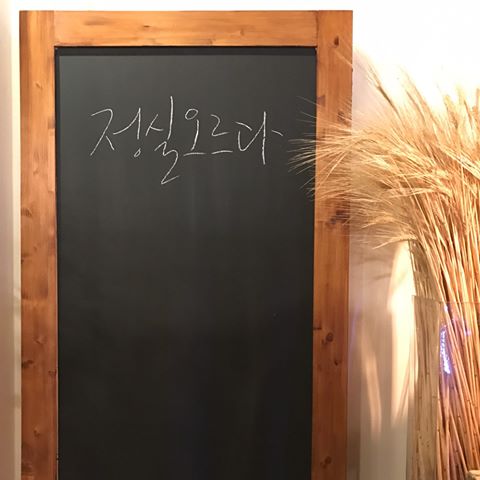 정실오르다